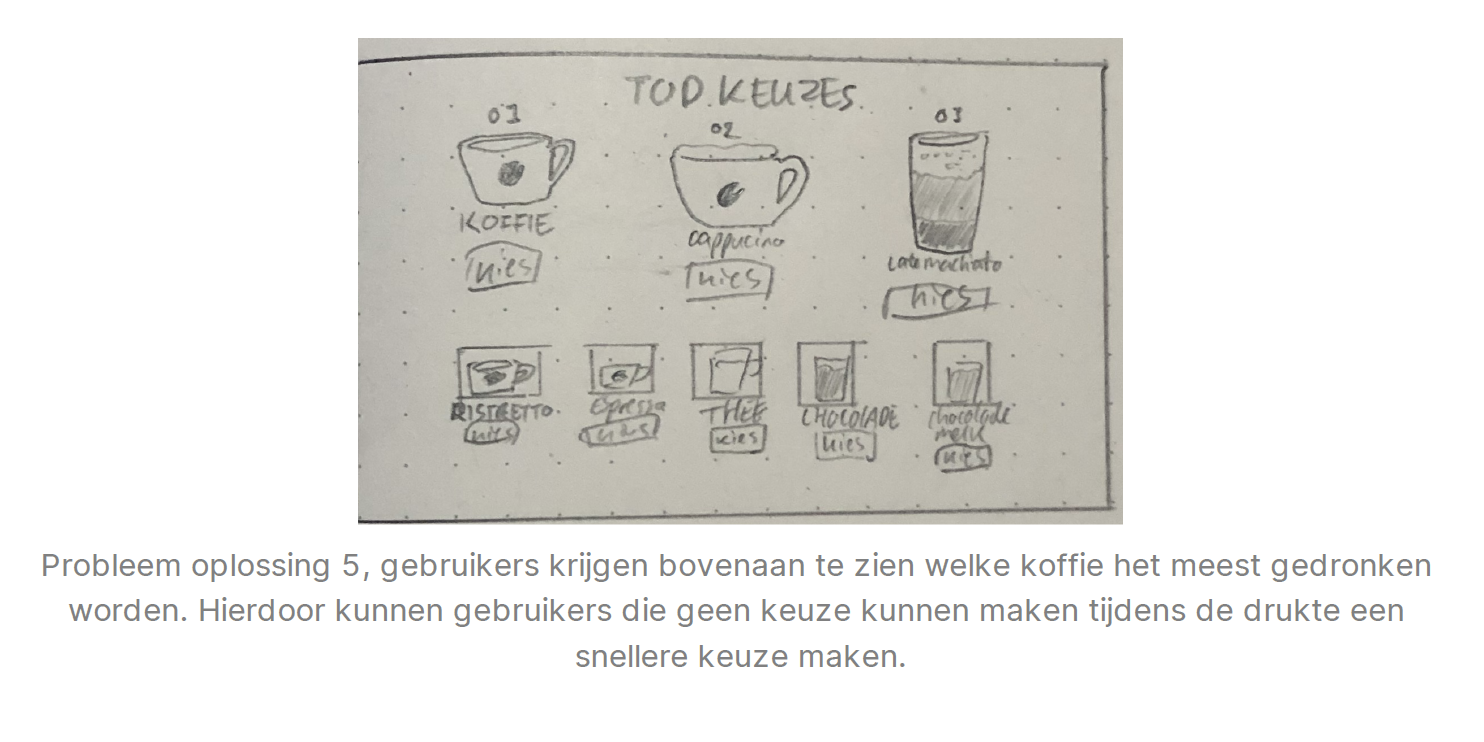 TOP KEUZES
01
02
03
KOFFIE
cappucino
Latemachiato
kies
kies
kies
RISTRETTO
Espresso
THEE
CHOCOLADE
chocolade
melk
kies
kies
kies
kies
kies
Probleem oplossing 5, gebruikers krijgen bovenaan te zien welke koffie het meest gedronken
worden. Hierdoor kunnen gebruikers die geen keuze kunnen maken tijdens de drukte een
snellere keuze maken.